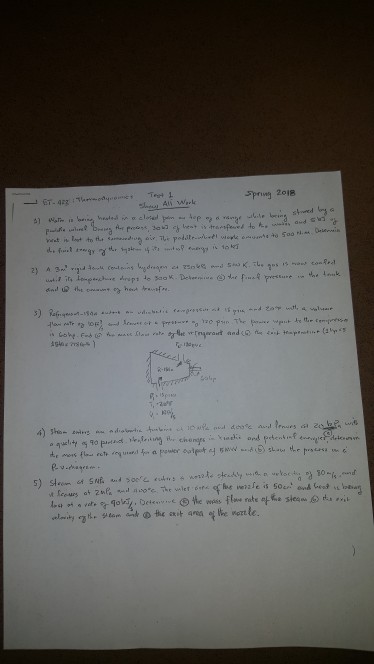 ET-422: Thermodynamics Test 1 Spring 2018
Show All Work
1) Water is being heated in a closed pan on top of a range while being stirred by a
paddle wheel. During the process, 30kJ of heat is transferred to the water and 5kJ of
heat is lost to the surrounding air. The paddle wheel work amounts to 500 N.m. Determine
the final energy of the system if its initial energy is 10kJ
2) A 3m³ rigid tank contains hydrogen at 250kPa and 500K. The gas is now cooled
until its temperature drops to 300K. Determine (a) the final pressure in the tank
and (b) the amount of heat transfer.
3) Refrigerant-134a enters an adiabatic compressor at 15 psia and 20°F with a volume
flow rate of 10ft³/s and leaves at a pressure of 100 psia. The power input to the compressor
is 60hp. Find (a) the mass flow rate of the refrigerant and (b) the exit temperature
R-134a
60hp
4) Steam enters an adiabatic turbine at 10MPa and 400°C and leaves at 20 kPa with
a quality of 90 percent. Neglecting the changes in kinetic and potential energies, determine
the mass flow rate required for a power output of 5MW and (b) show the process in a
P-v diagram.
5) Steam at 5MPa and 500°C enters a nozzle steadily with a velocity of 80 m/s, and
it leaves at 2MPa and 400°C. The inlet area of the nozzle is 50cm² and heat is being
lost at a rate of 90kJ/s. Determine (a) the mass flow rate of the steam (b) the exit
velocity of the steam and (c) the exit area of the nozzle.